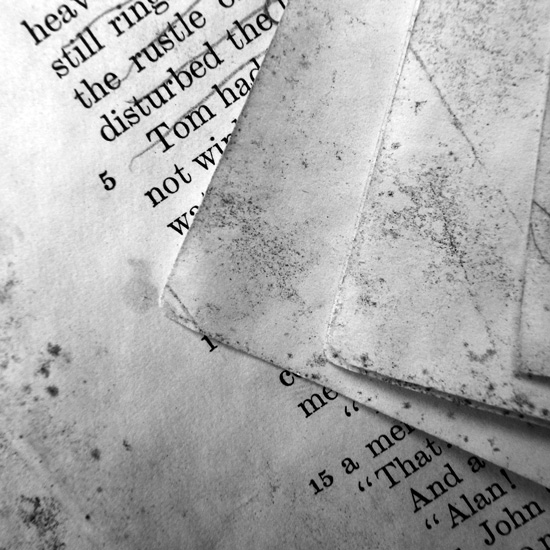 heav
still ring
the rustle o
disturbed the
Tom had
5 not win
wa
1
c
me
“
15 a mem
“That
And a
“Alan!
John